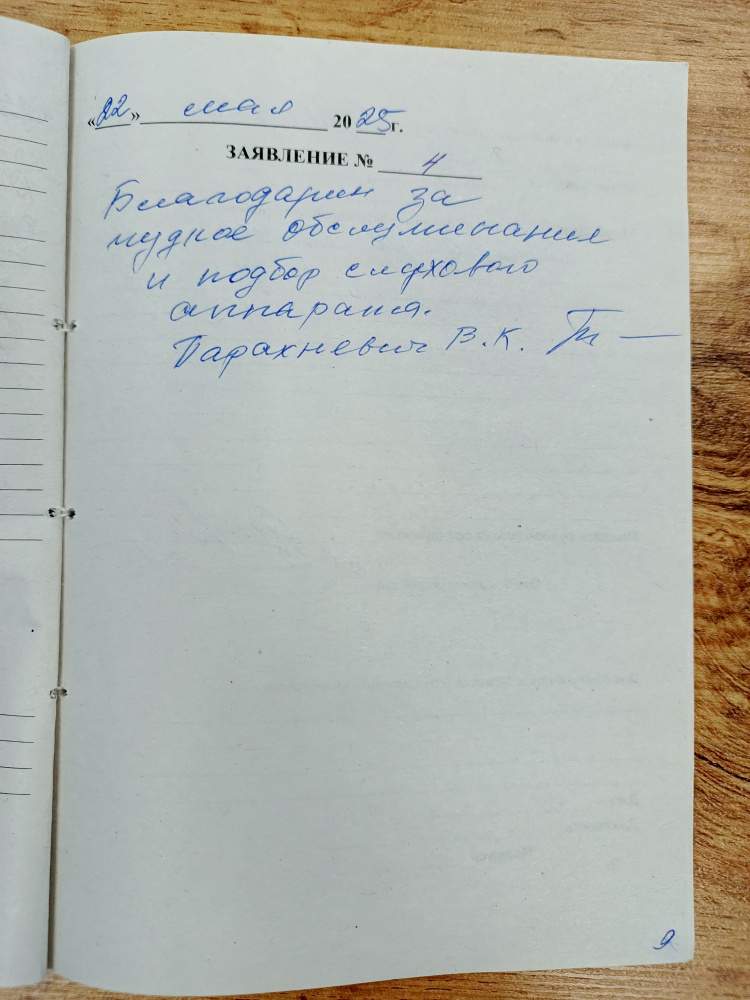 «22» мая 2025г.
ЗАЯВЛЕНИЕ № 4
Благодарим за
чудное обслуживания
и подбор слухового
аппарата.
Парахневич В.К.
9